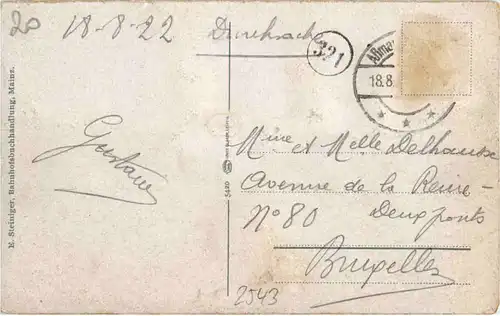 20 18-8-22 Drucksache
321
Aßma
18.8.
E. Steiniger, Bahnhofsbuchhandlung, Mainz.
Gustave
5420
Mme et Melle Delhaute
Avenue de la Reine -
N° 80 Deux ponts
Bruxelles
2543